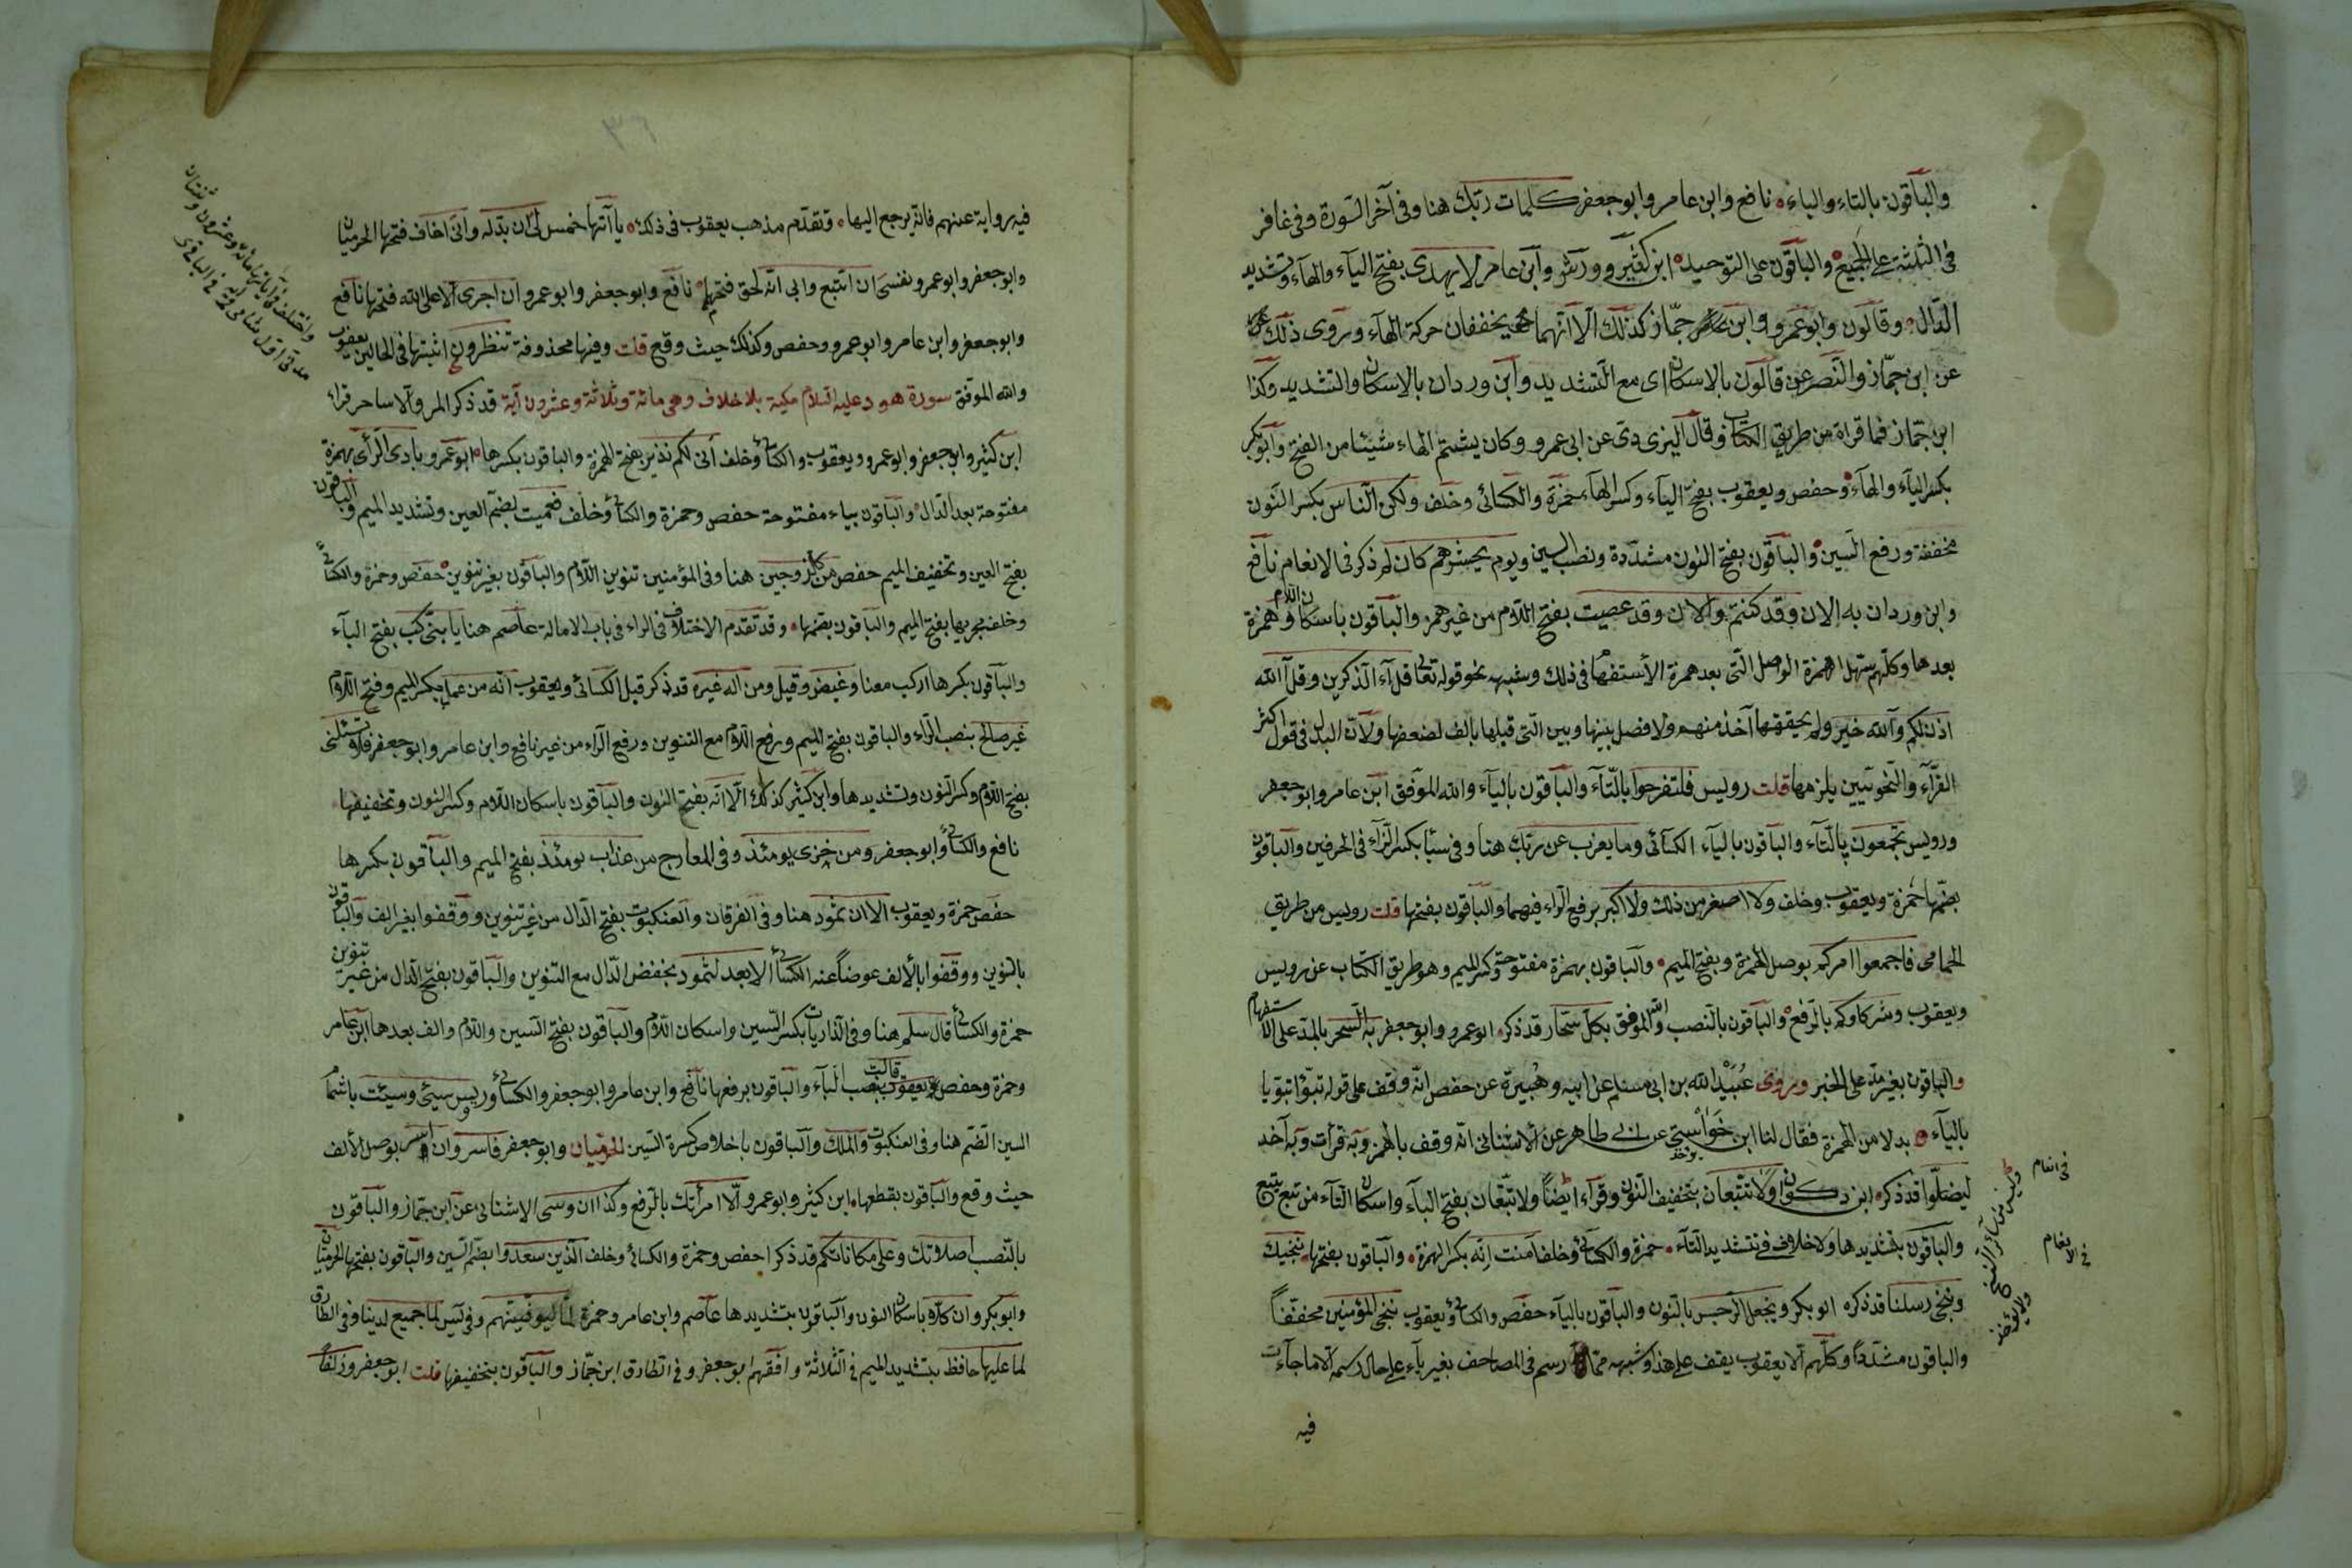 والباقون بالتاء والباء نافع وابن عامر وابو جعفر كلمات ربك هنا وفى آخر السورة وفى غافر
فى الثلثة على الجمع والباقون على التوحيد ابن كثير وورش وابن عامر لا يهدى بفتح الياء والهاء وتشديد
الدال وقالون وابو عمرو وابن جماز كذلك الا انهما يخففان حركة الهاء وروى ذلك
عن ابن جماز والنص عن قالون بالاسكان اى مع التشديد وابن وردان بالاسكان والتشديد وكذا
ابن جماز فما قراة من طريق الكتاب وقال اليزيدى عن ابى عمرو وكان يشم الهاء شيئا من الفتح وابو بكر
بكسر الياء والهاء وحفص ويعقوب بفتح الياء وكسر الهاء حمزة والكسائى وخلف ولكن الناس بكسر النون
مخففة ورفع السين والباقون بفتح النون مشددة ونصب السين ويوم يحشرهم كان لم ذكر فى الانعام نافع
وابن وردان به الان وقد كنتم والان وقد عصيت بفتح اللام من غير همز والباقون باسكان اللام وهمزة
بعدها وكلهم سهل همزة الوصل التى بعد همزة الاستفهام فى ذلك وشبهه نحو قوله تعالى قل آء الذكرين وقل آلله
اذن لكم وآلله خير ولم يحققها آخذ منهم ولا فصل بينها وبين التى قبلها بالف لضعفها ولان البدل فى قول اكثر
القراء والنحويين يلزمها قلت رويس فلتفرحوا بالتاء والباقون بالياء والله الموفق ابن عامر وابو جعفر
ورويس تجمعون بالتاء والباقون بالياء الكسائى وما يعزب عن ربك هنا وفى سبأ بكسر الزاء فى الحرفين والباقون
بضمها حمزة ويعقوب وخلف ولا اصغر من ذلك ولا اكبر برفع الراء فيهما والباقون بفتحها قلت رويس من طريق
الحمامى فاجمعوا امركم بوصل الهمزة وبفتح الميم والباقون بهمزة مفتوحة وكسر الميم وهو طريق الكتاب عن رويس
ويعقوب وشركاوكم بالرفع والباقون بالنصب والله الموفق بكل سحار قد ذكر ابو عمرو وابو جعفر به السحر بالمد على الاستفهام
والباقون بغير مد على الخبر وروى عبيد الله بن ابى مسلم عن ابيه وهبيرة عن حفص انه وقف على قوله تبوا تبويا
بالياء بدلا من الهمزة فقال لنا ابن خواستى عن ابى طاهر عن الاشنانى انه وقف بالهمز وبه قرأت وبه آخذ
ليضلوا قد ذكر ابن ذكوان ولا تتبعان بتخفيف النون وقراء ايضا ولا تتبعان بفتح الباء واسكان التاء من تبع يتبع
والباقون بتشديدها ولا خلاف فى تشديد التاء حمزة والكسائى وخلف آمنت انه بكسر الهمزة والباقون بفتحها ننجيك
وننجى رسلنا قد ذكره ابو بكر ونجعل الرجس بالنون والباقون بالياء حفص والكسائى ويعقوب ننجى المؤمنين مخففا
والباقون مشددا وكلهم الا يعقوب يقف على هذا وشبهه مما رسم فى المصاحف بغير ياء على حال رسمه الا ما جاءت
فيه
فى انعام
فى الانعام
فيه رواية عنهم فانه يرجع اليها وتقدم مذهب يعقوب فى ذلك ياآتها خمس لى ان بدله وانى اخاف فتحها الحرميان
وابو جعفر وابو عمرو ونفسى ان اتبع وابى انه لحق فتحهما نافع وابو جعفر وابو عمرو ان اجرى الا على الله فتحها نافع
وابو جعفر وابن عامر وابو عمرو وحفص وكذلك حيث وقع قلت وفيها محذوفة تنظرون اثبتها فى الحالين يعقوب
والله الموفق سورة هود عليه السلام مكية بلا خلاف وهى مائة وثلاثة وعشرون آية قد ذكر المر والا ساحر قراء
ابن كثير وابو جعفر وابو عمرو ويعقوب والكسائى وخلف انى لكم نذير بفتح الهمزة والباقون بكسرها ابو عمرو بادى الرأى بهمزة
مفتوحة بعد الدال والباقون بياء مفتوحة حفص وحمزة والكسائى وخلف فعميت بضم العين وتشديد الميم والباقون
بفتح العين وتخفيف الميم حفص من كل زوجين هنا وفى المؤمنين تنوين اللام والباقون بغير تنوين حفص وحمزة والكسائى
وخلف مجريها بفتح الميم والباقون بضمها وقد تقدم الاختلاف فى الراء فى باب الامالة عاصم هنا يا بنى اركب بفتح الياء
والباقون بكسرها اركب معنا وغيض وقيل ومن اله غيره قد ذكر قبل الكسائى ويعقوب انه من عمل بكسر الميم وفتح اللام
غير صالح بنصب الراء والباقون بفتح الميم ورفع اللام مع التنوين ورفع الراء من غير نافع وابن عامر وابو جعفر فلا تسئلنى
بفتح اللام وكسر النون وتشديدها وابن كثير كذلك الا انه بفتح النون والباقون باسكان اللام وكسر النون وتخفيفها
نافع والكسائى وابو جعفر ومن خزى يومئذ وفى المعارج من عذاب يومئذ بفتح الميم والباقون بكسرها
حفص حمزة ويعقوب الا ان ثمود هنا وفى الفرقان والعنكبوت بفتح الدال من غير تنوين ووقفوا بغير الف والباقون
بالتنوين ووقفوا بالالف عوضا عنه الكسائى الا بعد لثمود بخفض الدال مع التنوين والباقون بفتح الدال من غير تنوين
حمزة والكسائى قال سلم هنا وفى الذاريات بكسر السين واسكان اللام والباقون بفتح السين واللام والف بعدها ابن عامر
وحمزة وحفص يعقوب قالت بنصب الباء والباقون برفعها نافع وابن عامر وابو جعفر والكسائى ورويس سيئ وسيئت باشمام
السين الضم هنا وفى العنكبوت والملك والباقون باخلاص كسرة السين الحرميان وابو جعفر فاسر وان اسر بوصل الالف
حيث وقع والباقون بقطعها ابن كثير وابو عمرو الا امرأتك بالرفع وكذا ان وسى الاشنانى عن ابن جماز والباقون
بالنصب اصلاتك وعلى مكاناتكم قد ذكر احفص وحمزة والكسائى وخلف الذين سعدوا بضم السين والباقون بفتحها الحرميان
وابو بكر وان كلا باسكان النون والباقون بتشديدها عاصم وابن عامر وحمزة لما ليوفينهم وفى يس لما جميع لدينا وفى الطارق
لما عليها حافظ بتشديد الميم فى الثلاثة وافقهم ابو جعفر وفى الطارق ابن جماز والباقون بتخفيفها قلت ابو جعفر وزلفا
واختلف فى آياتها مائة وعشرون وثنتان